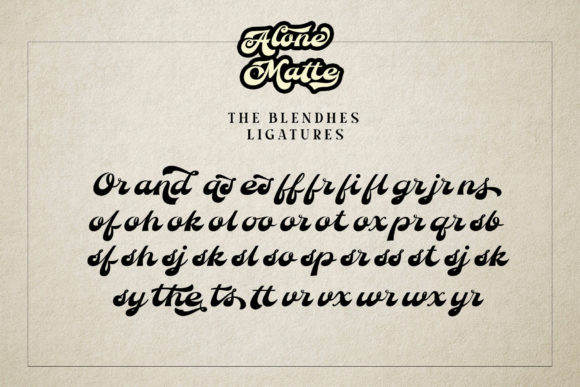 Alone
Matte
THE BLENDHES
LIGATURES
Or and as es ff fr fi fl gr jr ns
of oh ok ol oo or ot ox pr qr sb
sf sh sj sk sl so sp sr ss st sj sk
sy the ts tt vr vx wr wx yr